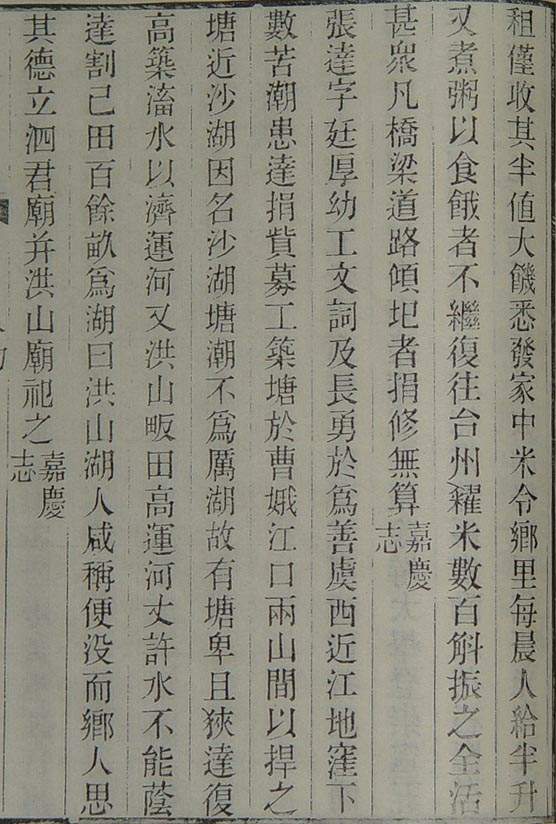 租僅收其半值大饑悉發家中米令鄉里每晨人給半升
又煮粥以食餓者不繼復往台州糴米數百斛振之全活
甚衆凡橋梁道路傾圯者捐修無算嘉慶志
張達字廷厚幼工文詞及長勇於為善虞西近江地窪下
數苦潮患達捐貲募工築塘於曹娥江口兩山間以捍之
塘近沙湖因名沙湖塘潮不為厲湖故有塘卑且狹達復
高築滀水以濟運河又洪山畈田高運河丈許水不能蔭
達割己田百餘畝為湖曰洪山湖人咸稱便没而鄉人思
其德立泗君廟并洪山廟祀之嘉慶志